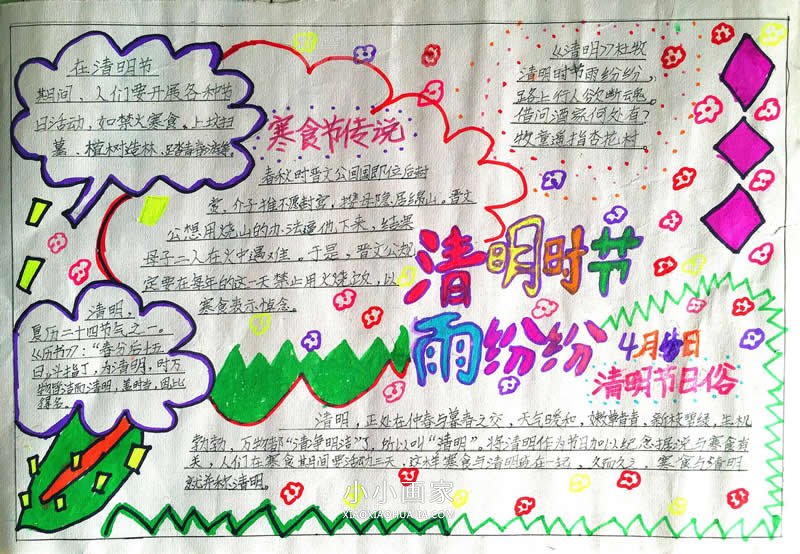 在清明节
期间，人们要开展各种节
日活动，如禁火寒食、上坟扫
墓、植树造林、踏青
寒食节传说
春秋时晋文公回国即位后封
赏，介子推不愿封赏，携母隐居绵山。晋文
公想用烧山的办法逼他下来，结果
母子二人在火中遇难。于是，晋文公规
定要在每年的这一天禁止用火烧饭，以
寒食表示悼念。
《清明》杜牧
清明时节雨纷纷，
路上行人欲断魂。
借问酒家何处有？
牧童遥指杏花村。
清明时节
雨纷纷
4月 日
清明节日俗
清明，
夏历二十四节气之一。
《历书》："春分后十五
日，斗指丁，为清明，时万
物皆洁而清明，盖时当，因此
得名。
清明，正处在仲春与暮春之交，天气暖和，嫩草青青，新枝翠绿，生机
勃勃，万物都"清净明洁"了，所以叫"清明"。将清明作为节日加以纪念据说与寒食有
关，人们在寒食其期间要活动三天，这样寒食与清明连在一起，久而久之，寒食与清明
就并称清明。
小小画家
XIAOXIAOHUAJIA.COM